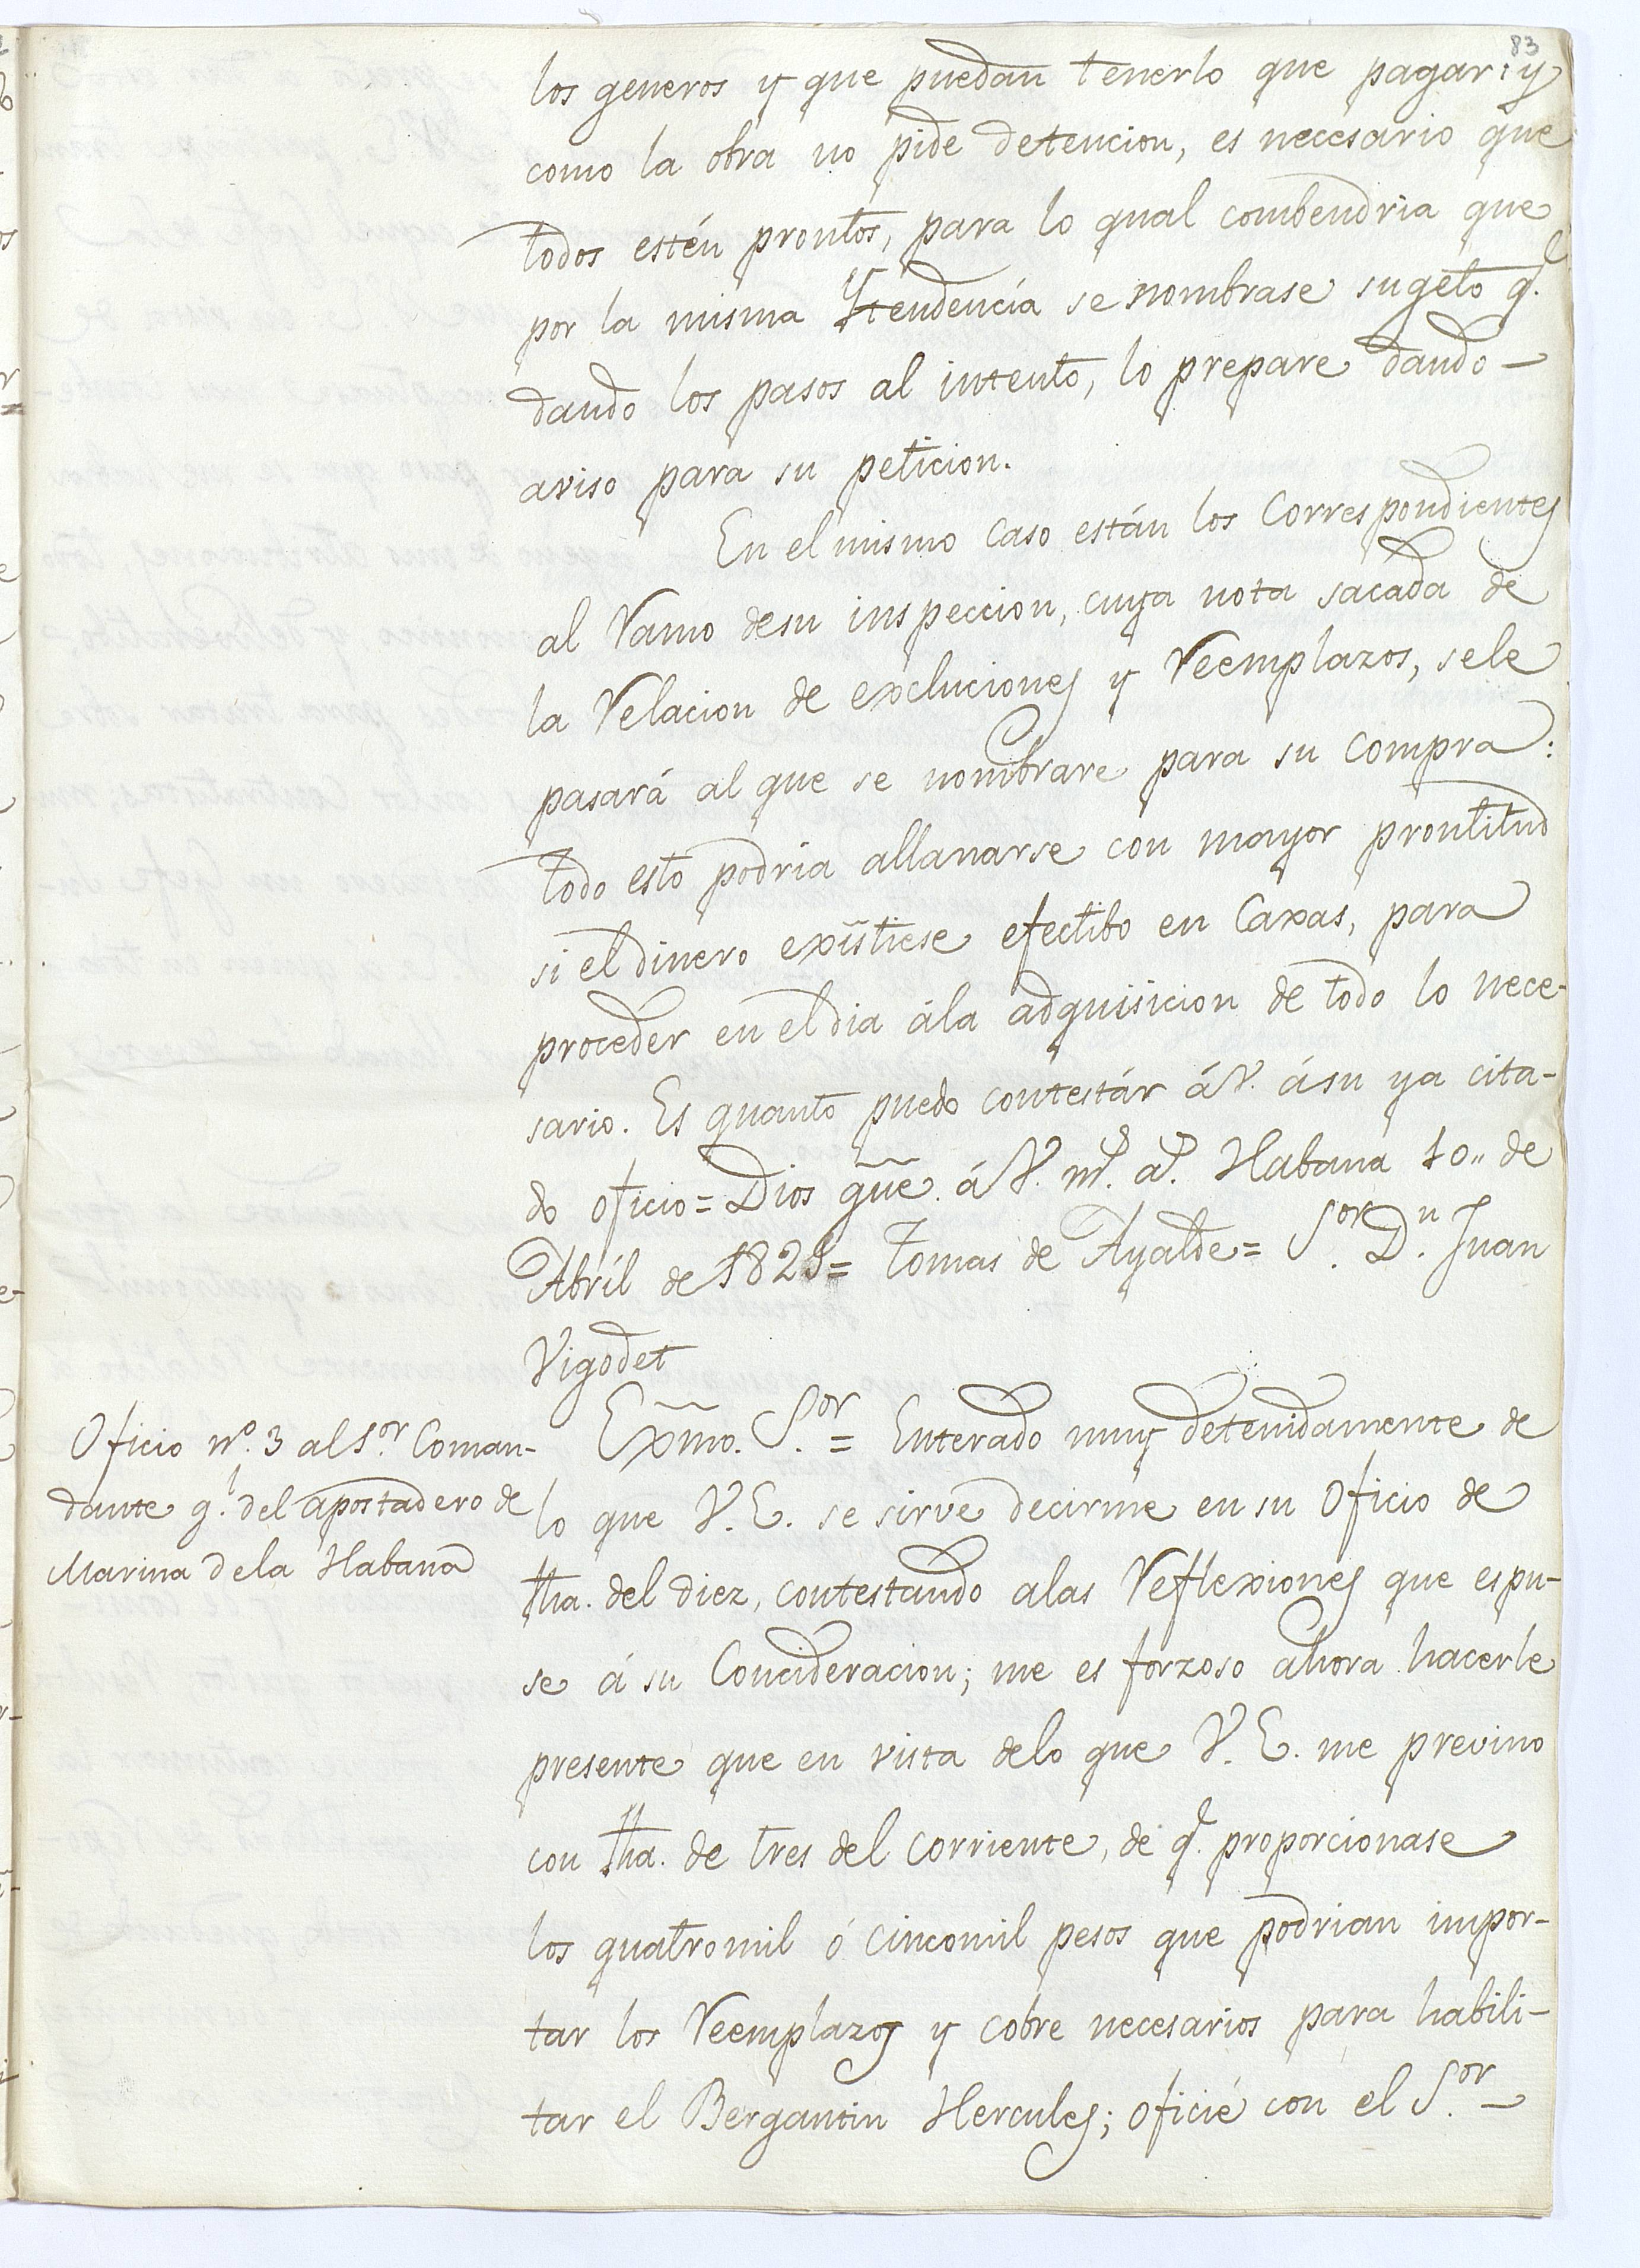 83
los generos y que puedan tenerlo que pagar: y
como la obra no pide detencion, es necesario que
todos estén prontos, para lo qual combendria que
por la misma Yntendencia se nombrase sugeto q.e
dando los pasos al intento, lo prepare dando
aviso para su peticion.
En el mismo caso están los Correspondientes
al Ramo desu inspeccion, cuya nota sacada de
la Relacion de excluciones y Reemplazos, sele
pasará al que se nombrare para su compra:
todo esto podria allanarse con mayor prontitud
si el dinero existiese efectibo en Caxas, para
proceder en el dia ála adquisicion de todo lo nece-
sario. Es quanto puedo contestár á V. ásu ya cita-
do oficio = Dios gũe. á V. m.s a.s Habana 10,, de
Abríl de 182 = Tomas de Ayalde = S.or D.n Juan
Vigodet
Oficio n.o 3 al s.or Coman-
dante g.l del apostadero de
Marina dela Habana
Exm̃o. S.or = Enterado muy detenidamente de
lo que V.E. se sirve decirme en su Oficio de
fha. del diez, contestando alas Reflexiones que espu-
se á su Concideracion; me es forzoso ahora hacerle
presente que en vista delo que V.E. me previno
con fha. de tres del corriente, de q.e proporcionase
los quatromil ó cincomil pesos que podrian impor-
tar los Reemplazos y cobre necesarios para habili-
tar el Bergantin Hercules; oficié con el S.or